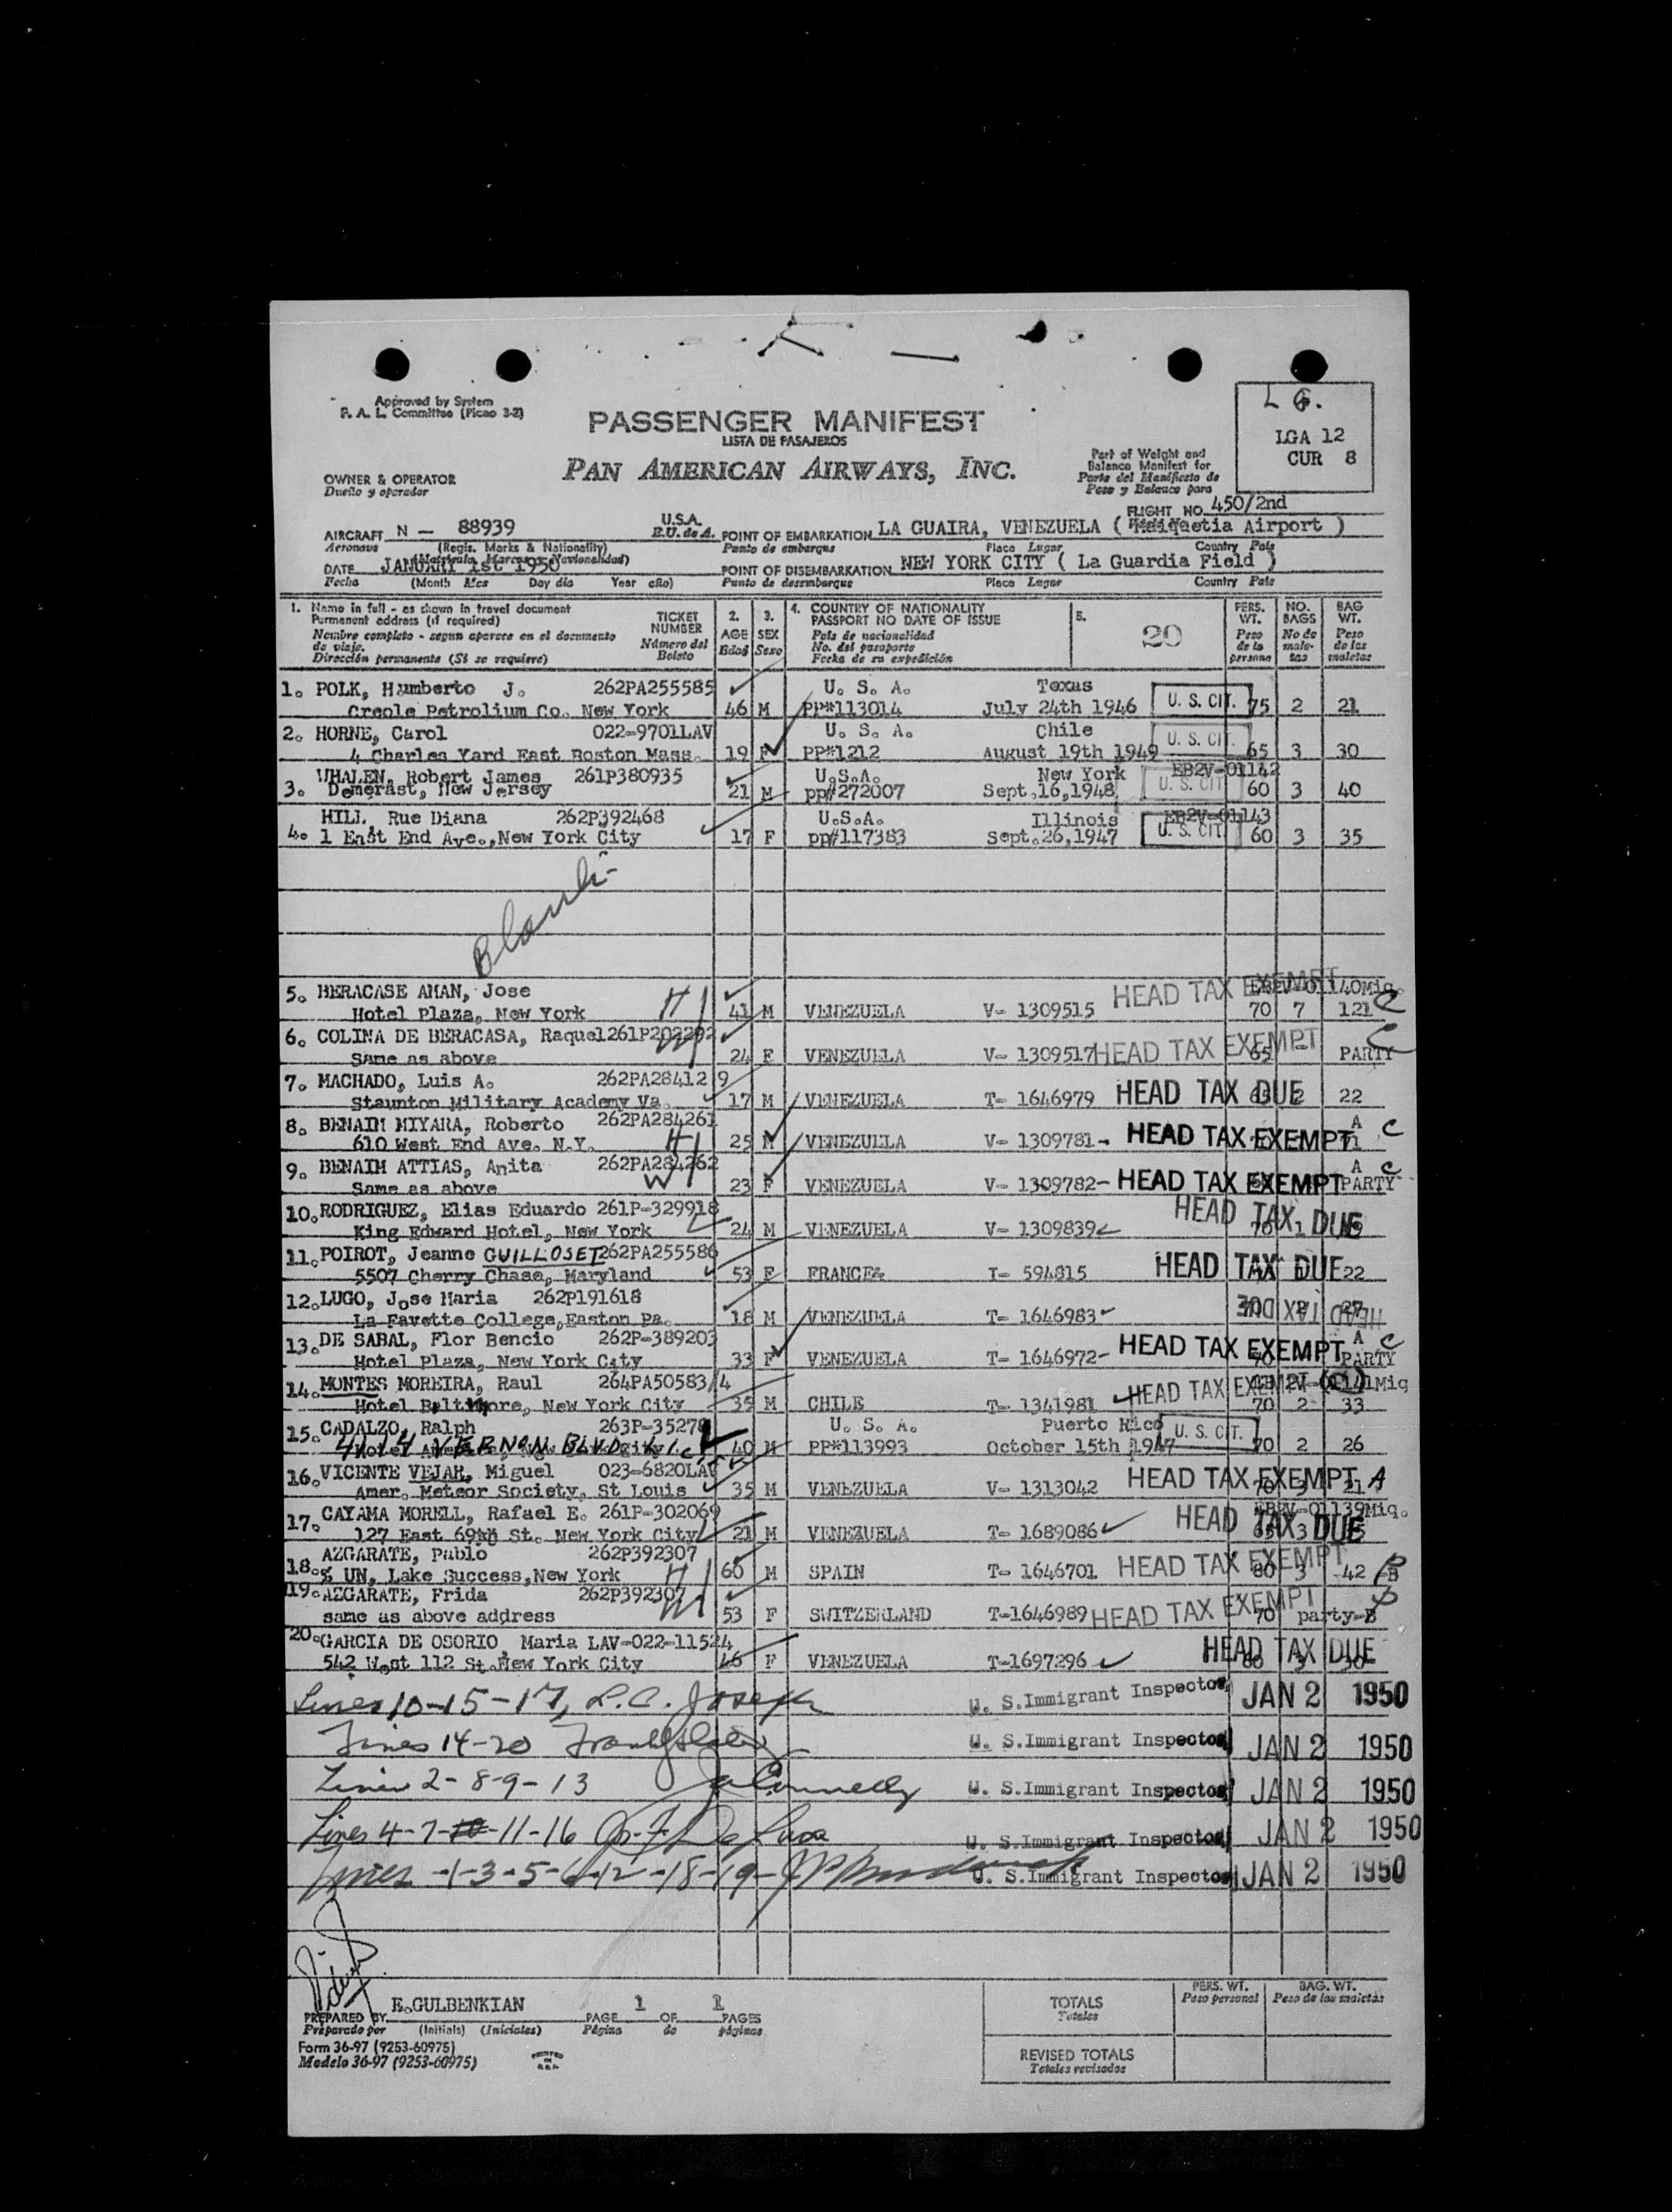 Approved by System
F. A. L. Committee (Picao 3-2)
PASSENGER MANIFEST
LISTA DE PASAJEROS
PAN AMERICAN AIRWAYS, INC.
L G.
LGA 12
CUR 8
OWNER & OPERATOR
Dueño y operador
Part of Weight and
Balance Manifest for
Parte del Manifiesto de
Peso y Balance para
FLIGHT NO. 450/2nd
AIRCRAFT N - 88939 U.S.A. POINT OF EMBARKATION LA GUAIRA, VENEZUELA ( Maiquetia Airport )
Aeronave (Regis. Marks & Nationality) E.U. de A. Punto de embarque Place Lugar Country País
(Matricula Marcas y Nacionalidad)
DATE JANUARY 1st 1950 POINT OF DISEMBARKATION NEW YORK CITY ( La Guardia Field )
Fecha (Month Mes Day día Year año) Punto de desembarque Place Lugar Country País
1. Name in full - as shown in travel document
Permanent address (if required)
Nombre completo - segun aparece en el documento
de viaje.
Dirección permanente (Si se requiere)
TICKET NUMBER
Número del Boleto
2. AGE Edad
3. SEX Sexo
4. COUNTRY OF NATIONALITY
PASSPORT NO DATE OF ISSUE
País de nacionalidad
No. del pasaporte
Fecha de su expedición
5. 20
PERS. WT. Peso de la persona
NO. BAGS No de maletas
BAG WT. Peso de las maletas
1. POLK, Humberto J. 262PA255585 U. S. A. Texas
Creole Petrolium Co. New York 46 M PP#113014 July 24th 1946 U. S. CIT. 75 2 21
2. HORNE, Carol 022-9701LAV U. S. A. Chile
4 Charles Yard East Boston Mass. 19 F PP#1212 August 19th 1949 U. S. CIT. 65 3 30
WHALEN, Robert James 261P380935 U.S.A. New York EB2V-01142
3. Demerast, New Jersey 21 M pp#272007 Sept.16,1948 U. S. CIT 60 3 40
HILL Rue Diana 262P392468 U.S.A. Illinois EB2V-01143
4. 1 East End Ave., New York City 17 F pp#117383 Sept.26,1947 U. S. CIT. 60 3 35
Blank
5. BERACASE AMAN, Jose H HEAD TAX EXEMPT EB2V-01140Miq.
Hotel Plaza, New York 41 M VENEZUELA V- 1309515 70 7 121 C
6. COLINA DE BERACASA, Raquel 261P202292
Same as above W 24 F VENEZUELA V- 1309517 HEAD TAX EXEMPT 65 - PARTY C
7. MACHADO, Luis A. 262PA284129
Staunton Military Academy Va. 17 M VENEZUELA T- 1646979 HEAD TAX DUE 65 2 22
8. BENAIM MIYARA, Roberto 262PA284261
610 West End Ave. N.Y. H 25 M VENEZUELA V- 1309781- HEAD TAX EXEMPT A C
9. BENAIM ATTIAS, Anita 262PA284262
Same as above W 23 F VENEZUELA V- 1309782- HEAD TAX EXEMPT PARTY A C
10. RODRIGUEZ, Elias Eduardo 261P-329918
King Edward Hotel, New York 24 M VENEZUELA V- 1309839 HEAD TAX DUE 70 1
11. POIROT, Jeanne GUILLOSET 262PA255586
5507 Cherry Chase, Maryland 53 F FRANCE T- 594815 HEAD TAX DUE 22
12. LUGO, Jose Maria 262P191618
La Fayette College, Easton Pa. 18 M VENEZUELA T- 1646983 HEAD TAX DUE 27
13. DE SABAL, Flor Bencio 262P-389203
Hotel Plaza, New York City 33 F VENEZUELA T- 1646972- HEAD TAX EXEMPT 70 PARTY A C
14. MONTES MOREIRA, Raul 264PA50583/4
Hotel Baltimore, New York City 35 M CHILE T- 1341981 HEAD TAX EXEMPT 70 2 33
15. CADALZO, Ralph 263P-35279 U. S. A. Puerto Rico
VERNON BLVD. L.I.C. 40 M PP#113993 October 15th 1947 U. S. CIT. 70 2 26
16. VICENTE VEJAR, Miguel 023-6820LAV
Amer. Meteor Society, St Louis 35 M VENEZUELA V- 1313042 HEAD TAX EXEMPT 21 A
17. CAYAMA MORELL, Rafael E. 261P-302069 EB2V-01139Miq.
127 East 69th St. New York City 21 M VENEZUELA T- 1689086 HEAD TAX DUE 65 3
AZGARATE, Pablo 262P392307
18. % UN, Lake Success, New York H 60 M SPAIN T- 1646701 HEAD TAX EXEMPT 80 3 42 B
19. AZGARATE, Frida 262P392307
same as above address W 53 F SWITZERLAND T-1646989 HEAD TAX EXEMPT 70 party-B
20. GARCIA DE OSORIO, Maria LAV-022-11524
542 West 112 St. New York City 46 F VENEZUELA T-1697296 HEAD TAX DUE
Lines 10-15-17, L.C. Joseph U. S.Immigrant Inspector JAN 2 1950
Lines 14-20 U. S.Immigrant Inspector JAN 2 1950
Lines 2-8-9-13 Connelly U. S.Immigrant Inspector JAN 2 1950
Lines 4-7-10-11-16 U. S.Immigrant Inspector JAN 2 1950
Lines -1-3-5-6-12-18-19- U. S.Immigrant Inspector JAN 2 1950
E.GULBENKIAN
PREPARED BY PAGE 1 OF 1 PAGES
Preparado por (Initials) (Iniciales) Página de páginas
Form 36-97 (9253-60975)
Modelo 36-97 (9253-60975)
PRINTED IN U.S.A.
PERS. WT. BAG. WT.
Peso personal Peso de las maletas
TOTALS
Totales
REVISED TOTALS
Totales revisados